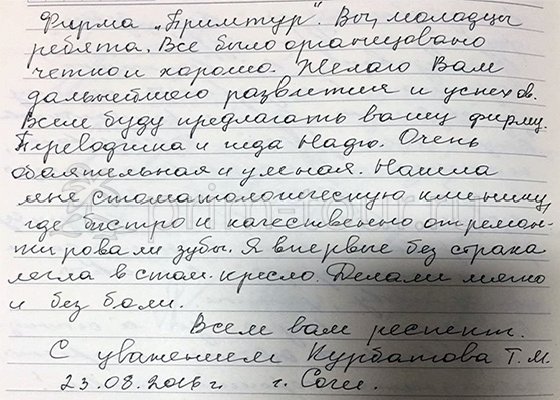 Фирма "Примтур". Вы, молодцы
ребята. Все было организовано
четко и хорошо. Желаю Вам
дальнейшего развития и успехов.
Всем буду предлагать вашу фирму.
Переводчика и гида Надю. Очень
обаятельная и умная. Нашла
мне стоматологическую клинику,
где быстро и качественно отремон-
тировали зубы. Я впервые без страха
легла в стом. кресло. Делали мягко
и без боли.
Всем вам респект.
С уважением Курбатова Т.М.
23.08.2016 г. г. Сочи.